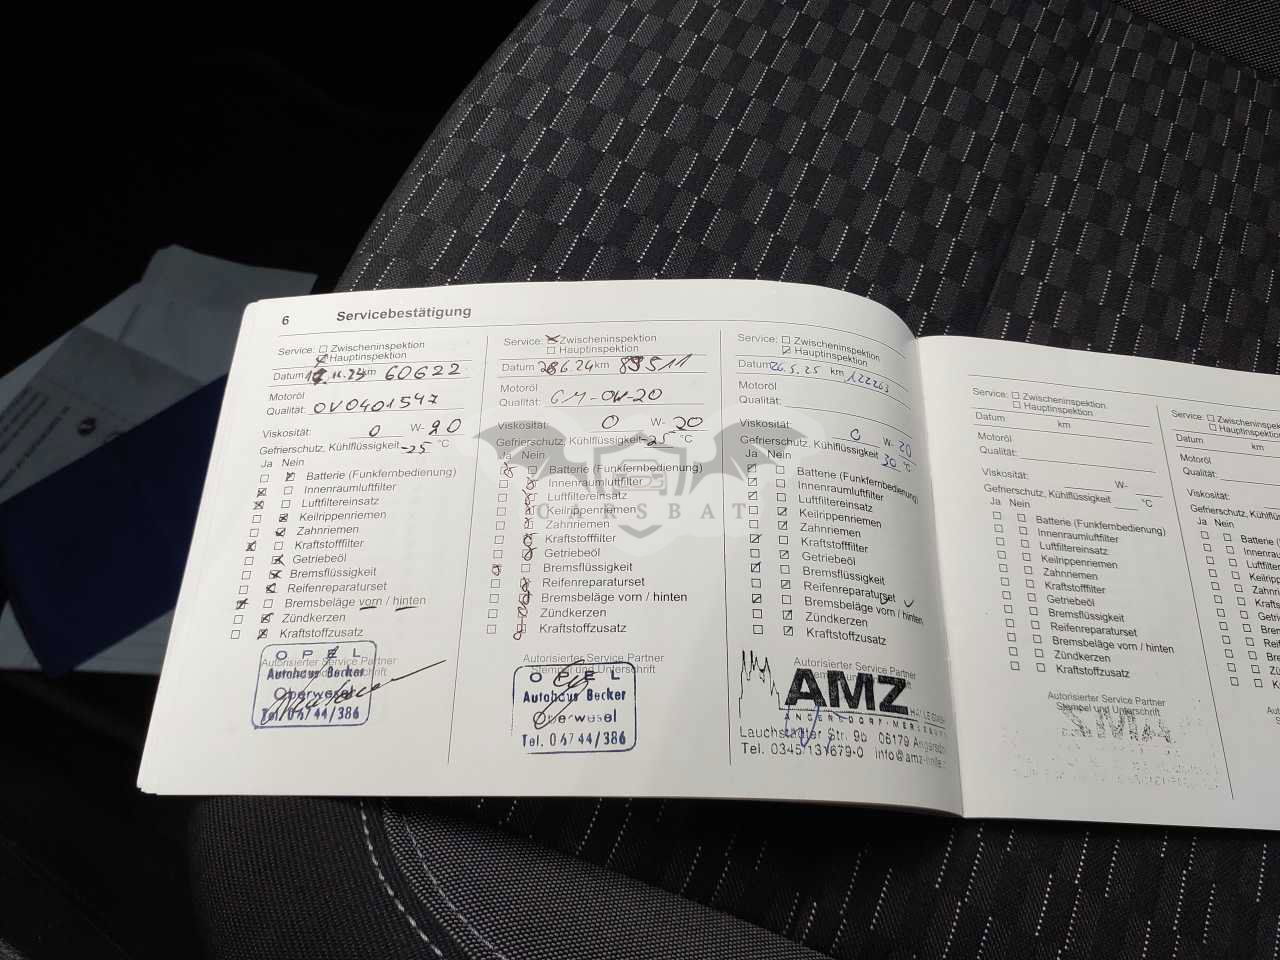 6 Servicebestätigung
Service: Zwischeninspektion
Hauptinspektion
Datum 11.23 km 60622
Motoröl
Qualität: OV0401547
Viskosität: 0 W- 20
Gefrierschutz, Kühlflüssigkeit -25 °C
Ja Nein
Batterie (Funkfernbedienung)
Innenraumluftfilter
Luftfiltereinsatz
Keilrippenriemen
Zahnriemen
Kraftstofffilter
Getriebeöl
Bremsflüssigkeit
Reifenreparaturset
Bremsbeläge vorn / hinten
Zündkerzen
Kraftstoffzusatz
Autorisierter Service Partner
OPEL
Autohaus Becker
Oberwesel
Tel. 06744/386
Service: Zwischeninspektion
Hauptinspektion
Datum 26.6.24 km 89511
Motoröl
Qualität: GM-OW-20
Viskosität: 0 W- 20
Gefrierschutz, Kühlflüssigkeit -25 °C
Ja Nein
Batterie (Funkfernbedienung)
Innenraumluftfilter
Luftfiltereinsatz
Keilrippenriemen
Zahnriemen
Kraftstofffilter
Getriebeöl
Bremsflüssigkeit
Reifenreparaturset
Bremsbeläge vorn / hinten
Zündkerzen
Kraftstoffzusatz
Autorisierter Service Partner
Stempel und Unterschrift
OPEL
Autohaus Becker
Oberwesel
Tel. 06744/386
Service: Zwischeninspektion
Hauptinspektion
Datum 26.5.25 km 122263
Motoröl
Qualität:
Viskosität: 0 W- 20
Gefrierschutz, Kühlflüssigkeit 30 °C
Ja Nein
Batterie (Funkfernbedienung)
Innenraumluftfilter
Luftfiltereinsatz
Keilrippenriemen
Zahnriemen
Kraftstofffilter
Getriebeöl
Bremsflüssigkeit
Reifenreparaturset
Bremsbeläge vorn / hinten
Zündkerzen
Kraftstoffzusatz
Autorisierter Service Partner
AMZ
HALLE GMBH
Lauchstädter Str. 9b 06179
Tel. 0345/131679-0
CARSBAT
Service: Zwischeninspektion
Hauptinspektion
Datum km
Motoröl
Qualität:
Viskosität: W-
Gefrierschutz, Kühlflüssigkeit °C
Ja Nein
Batterie (Funkfernbedienung)
Innenraumluftfilter
Luftfiltereinsatz
Keilrippenriemen
Zahnriemen
Kraftstofffilter
Getriebeöl
Bremsflüssigkeit
Reifenreparaturset
Bremsbeläge vorn / hinten
Zündkerzen
Kraftstoffzusatz
Autorisierter Service Partner
Stempel und Unterschrift
Service:
Datum km
Motoröl
Qualität:
Viskosität:
Ja Nein